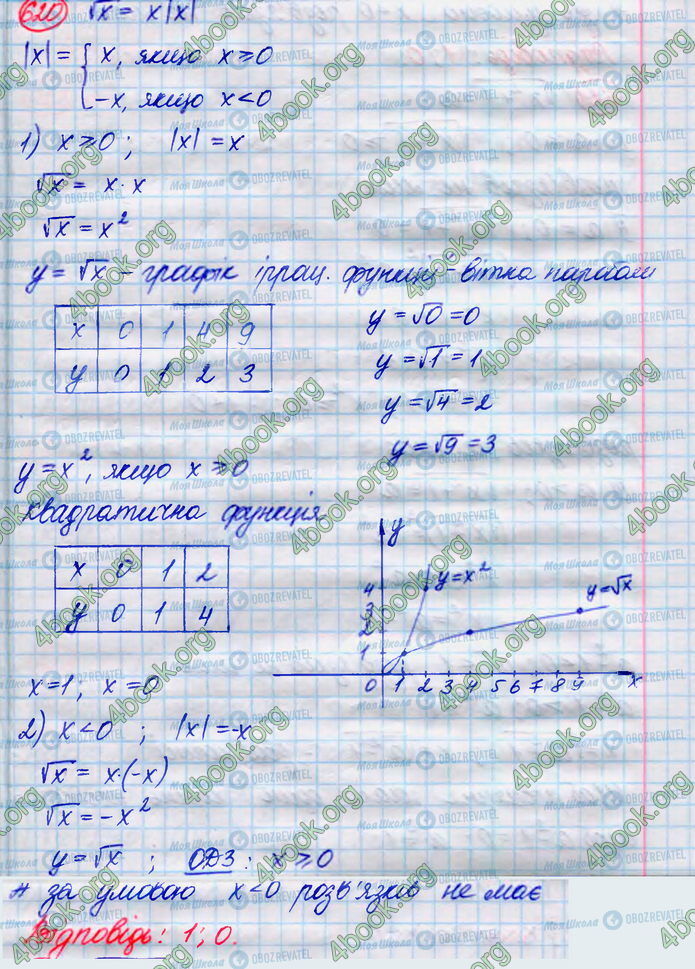 620 √x = x|x|
|x| = { x, якщо x ≥ 0
-x, якщо x < 0
1) x ≥ 0; |x| = x
√x = x · x
√x = x²
y = √x – графік іррац. функції – вітка парабол
x 0 1 4 9
y 0 1 2 3
y = √0 = 0
y = √1 = 1
y = √4 = 2
y = √9 = 3
y = x², якщо x ≥ 0
квадратична функція
x 0 1 2
y 0 1 4
y
y = x²
y = √x
4
3
2
1
0 1 2 3 4 5 6 7 8 9 x
x = 1; x = 0
2) x < 0; |x| = -x
√x = x·(-x)
√x = -x²
y = √x ; ОДЗ: x ≥ 0
А за умовою x < 0 розв'язків не має
Відповідь: 1; 0.
4book.org
Моя Школа OBOZREVATEL